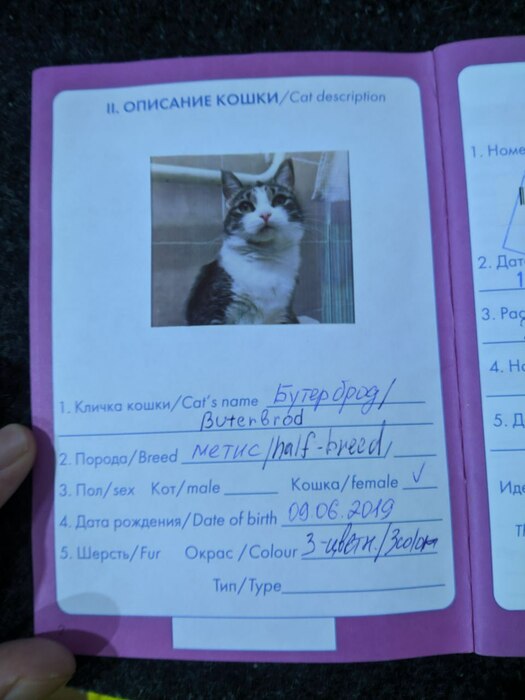 II. ОПИСАНИЕ КОШКИ/Cat description
1. Кличка кошки/Cat's name Бутерброд/
Buterbrod
2. Порода/Breed метис/half-breed/
3. Пол/sex Кот/male Кошка/female ✓
4. Дата рождения/Date of birth 09.06.2019
5. Шерсть/Fur Окрас/Colour 3-цветн./3color
Тип/Type
1. Номе
2. Дат
1
3. Рас
4. Но
5. Д
Иде
Th